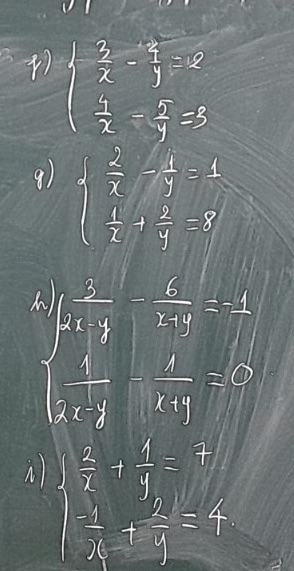 f) { 3/x - 4/y = 2
4/x - 5/y = 3
g) { 2/x - 1/y = 1
1/x + 2/y = 8
h) { 3/(2x-y) - 6/(x+y) = -1
1/(2x-y) - 1/(x+y) = 0
i) { 2/x + 1/y = 7
-1/x + 2/y = 4.